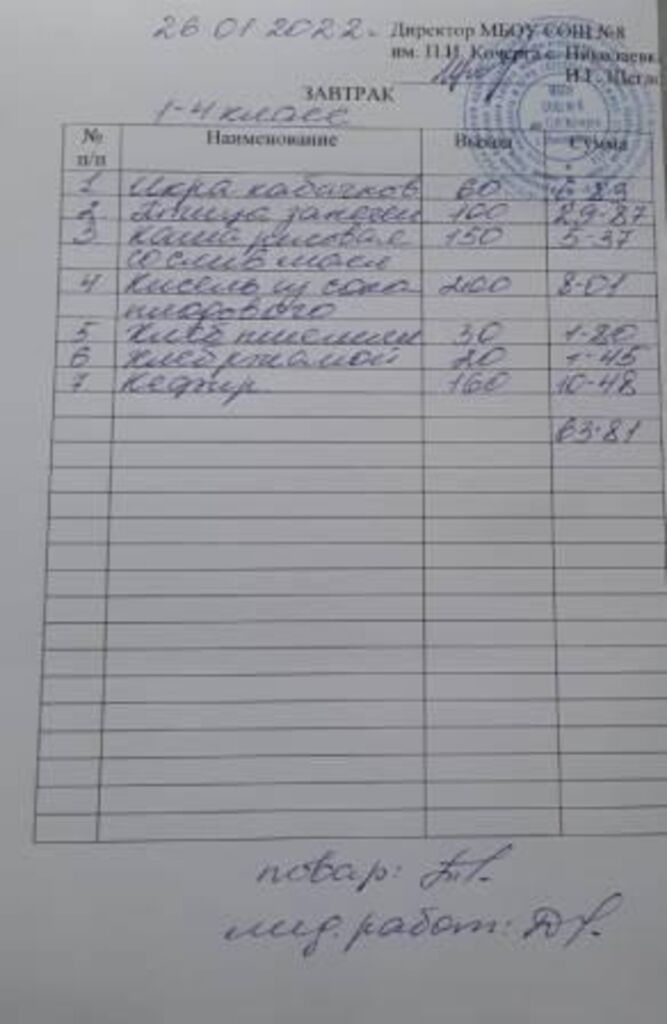 26 01 2022г.
Директор МБОУ СОШ №8
им. П.И. Кочерга с. Николаевк
И.Г. Щегло
ЗАВТРАК
1-4 класс
№ п/п Наименование Выход Сумма
1 Икра кабачков 60 6-89
2 Птица запечен 100 29-87
3 Каша рисовая 150 5-37
со слив масл
4 Кисель из сока 200 8-01
плодового
5 Хлеб пшеничн 30 1-80
6 Хлеб ржаной 20 1-45
7 Кефир 160 10-48
63-81
повар:
мед. работ: